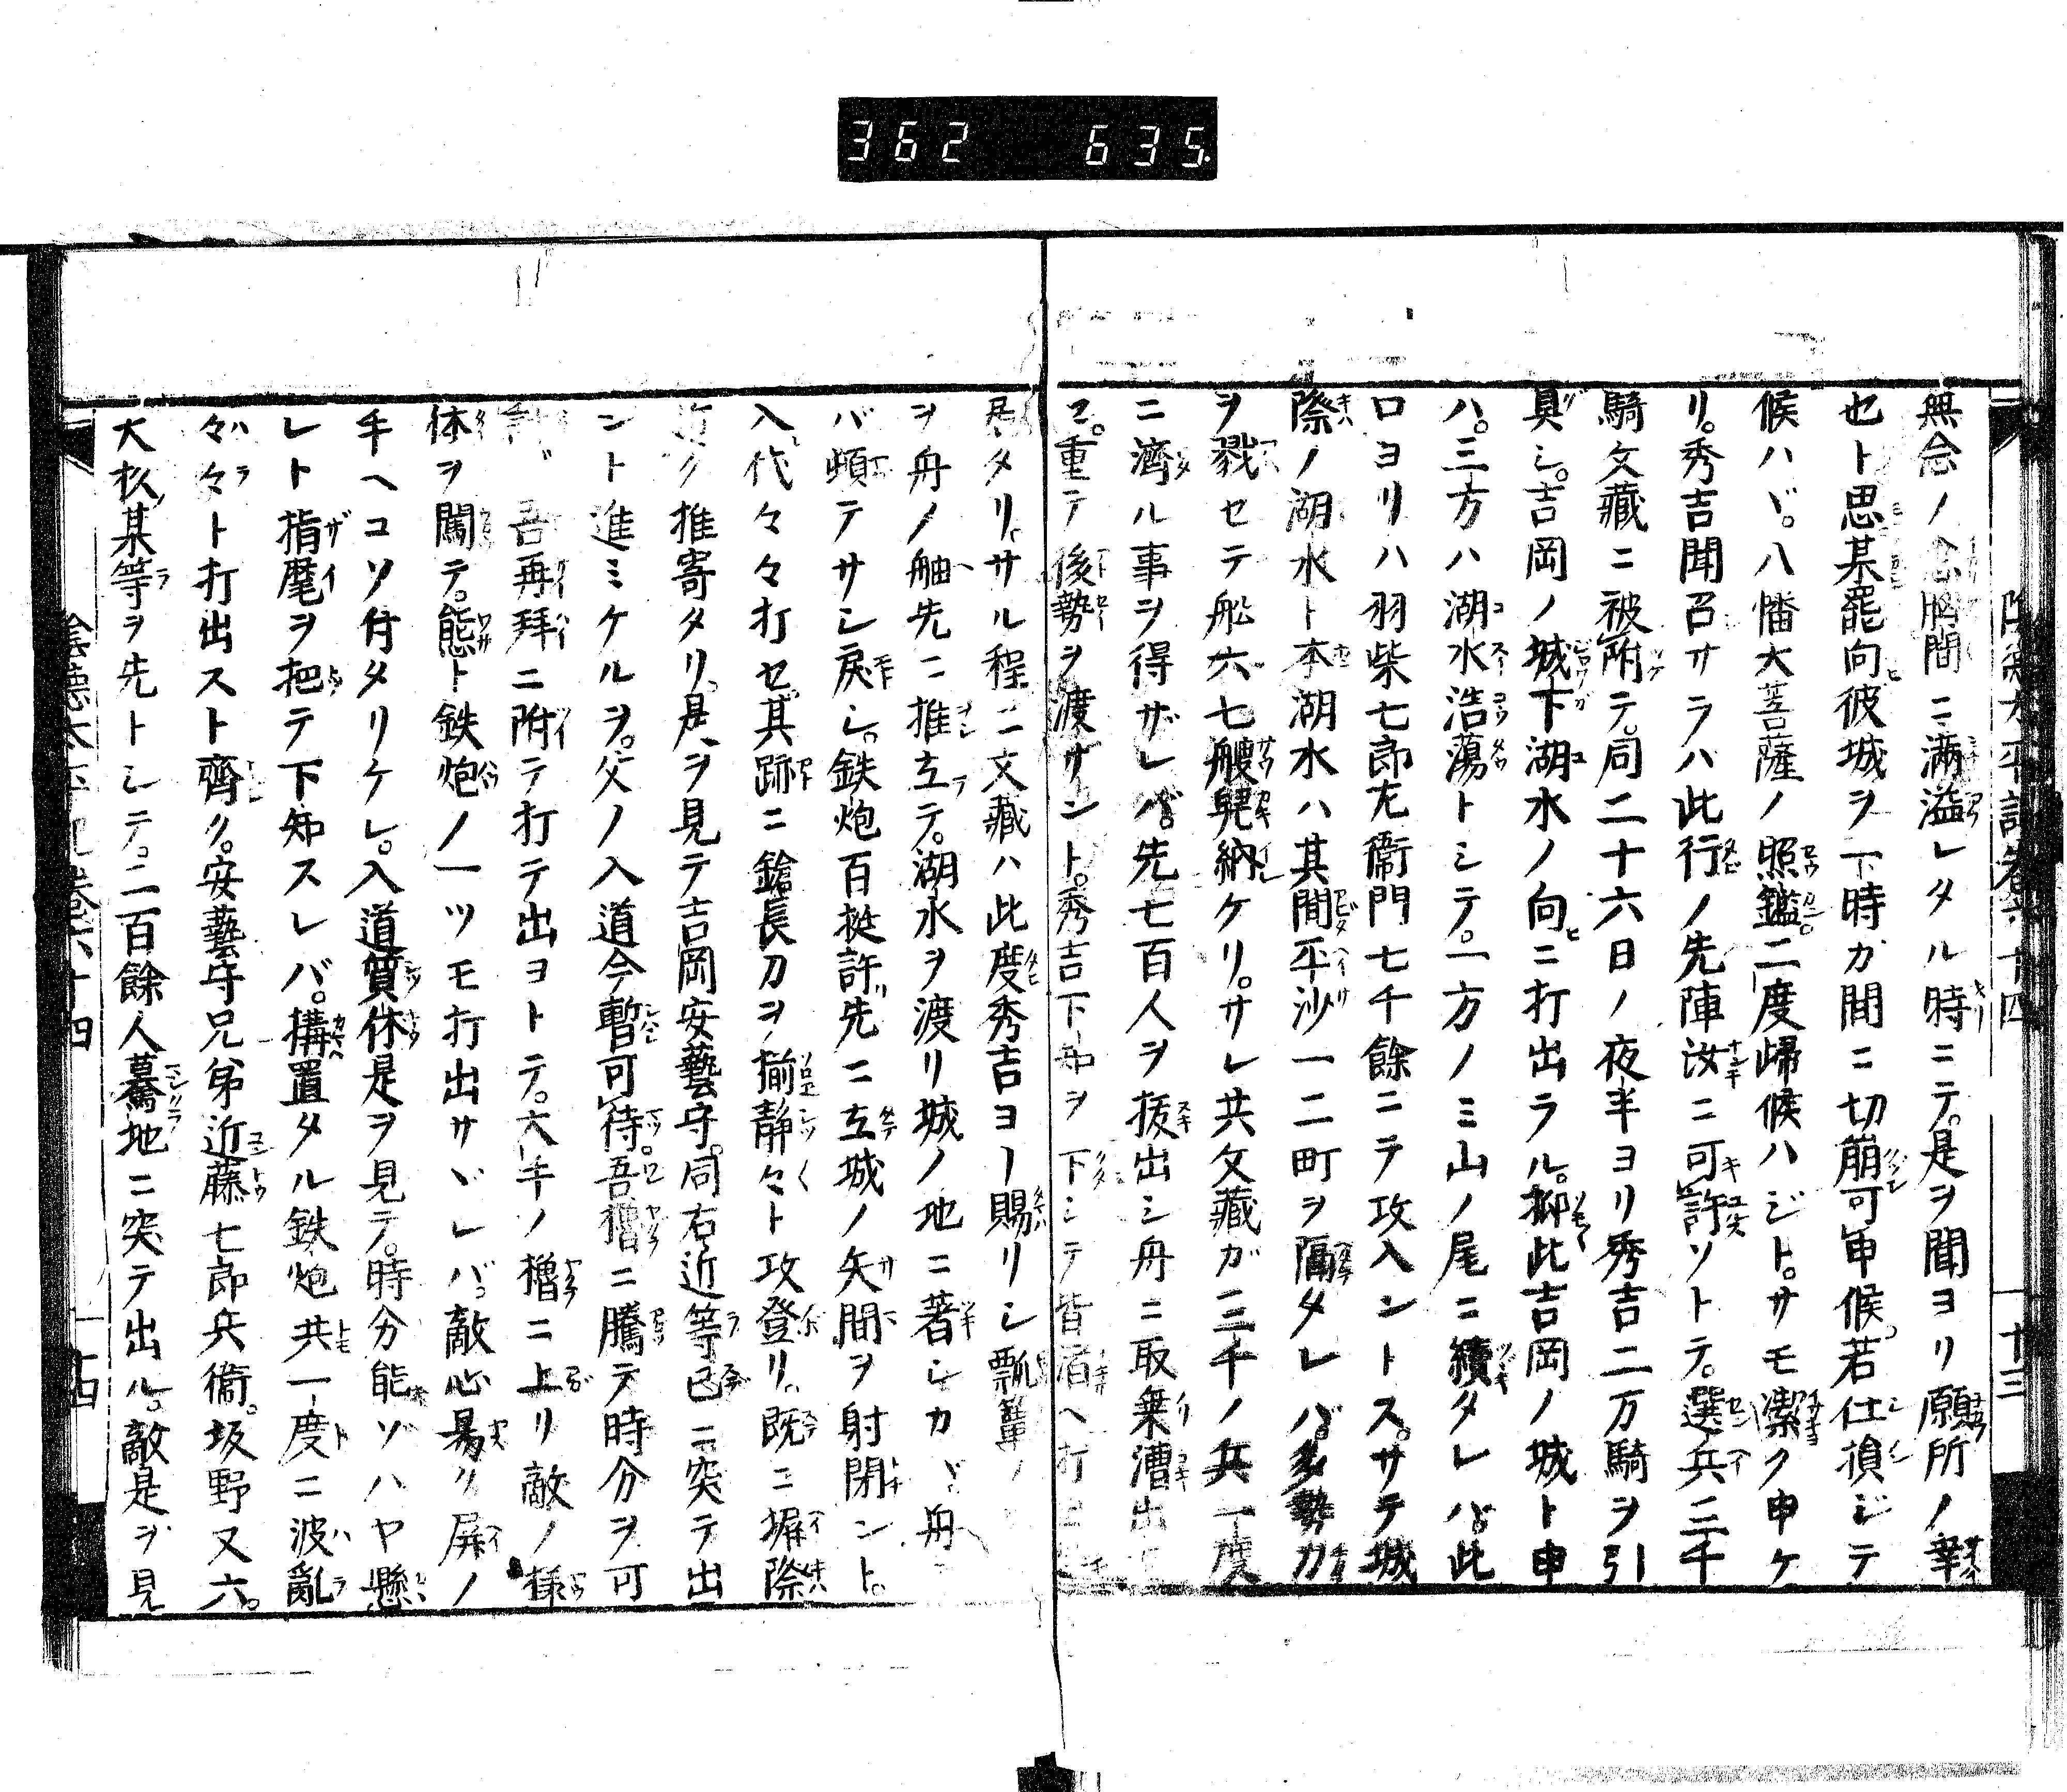 362 635
無念ノ念胸間ニ滿溢レタル時ニテ。是ヲ聞ヨリ願所ノ幸
也ト思某罷向彼城ヲ一時ガ間ニ切崩可申候若仕損ジテ
候ハヾ。八幡大菩薩ノ照鑑。二度歸候ハジト。サモ潔ク申ケ
リ。秀吉聞召サラハ此行ノ先陣汝ニ可許ソトテ。選兵三千
騎文藏ニ被附テ。同二十六日ノ夜半ヨリ秀吉二万騎ヲ引
具シ。吉岡ノ城下湖水ノ向ニ打出ラル。抑此吉岡ノ城ト申
ハ。三方ハ湖水浩蕩トシテ。一方ノミ山ノ尾ニ續タレバ此
口ヨリハ羽柴七郎左衞門七千餘ニテ攻入ントス。サテ城
際ノ湖水ト本湖水ハ其間平沙一二町ヲ隔タレバ多勢力
ヲ戮セテ舩六七艘舁納ケリ。サレ共文藏ガ三千ノ兵一度
ニ濟ル事ヲ得ザレバ。先七百人ヲ抜出シ舟ニ取乗漕出
重テ後勢ヲ渡サント。秀吉下知ヲ下シテ皆 ヘ打
タリ。サル程ニ文藏ハ此度秀吉ヨリ賜リシ瓢箪ノ
ヲ舟ノ舳先ニ推立テ。湖水ヲ渡リ城ノ地ニ著シカバ舟
バ頓テサシ戻シ。鉄炮百挺許先ニ立城ノ矢間ヲ射閉ント。
入代々々打セ。其跡ニ鎗長刀ヲ揃静々ト攻登リ。既ニ塀際
近ク推寄タリ。是ヲ見テ吉岡安藝守。同右近等已ニ突テ出
ント進ミケルヲ。父ノ入道今暫可待。吾櫓ニ騰テ時分ヲ可
計。吾再拜ニ附テ打テ出ヨトテ。大手ノ櫓ニ上リ敵ノ樣
体ヲ闚テ。態ト鉄炮ノ一ツモ打出サヾレバ。敵心易ク屏ノ
手ヘコソ付タリケレ。入道質休是ヲ見テ。時分能ゾハヤ懸
レト指麾ヲ把テ下知スレバ。構置タル鉄炮共一度ニ波亂
々々ト打出スト齊ク。安藝守兄弟近藤七郎兵衞。坂野又六。
大杦某等ヲ先トシテ。二百餘人驀地ニ突テ出ル。敵是ヲ見
陰德太平記卷六十四